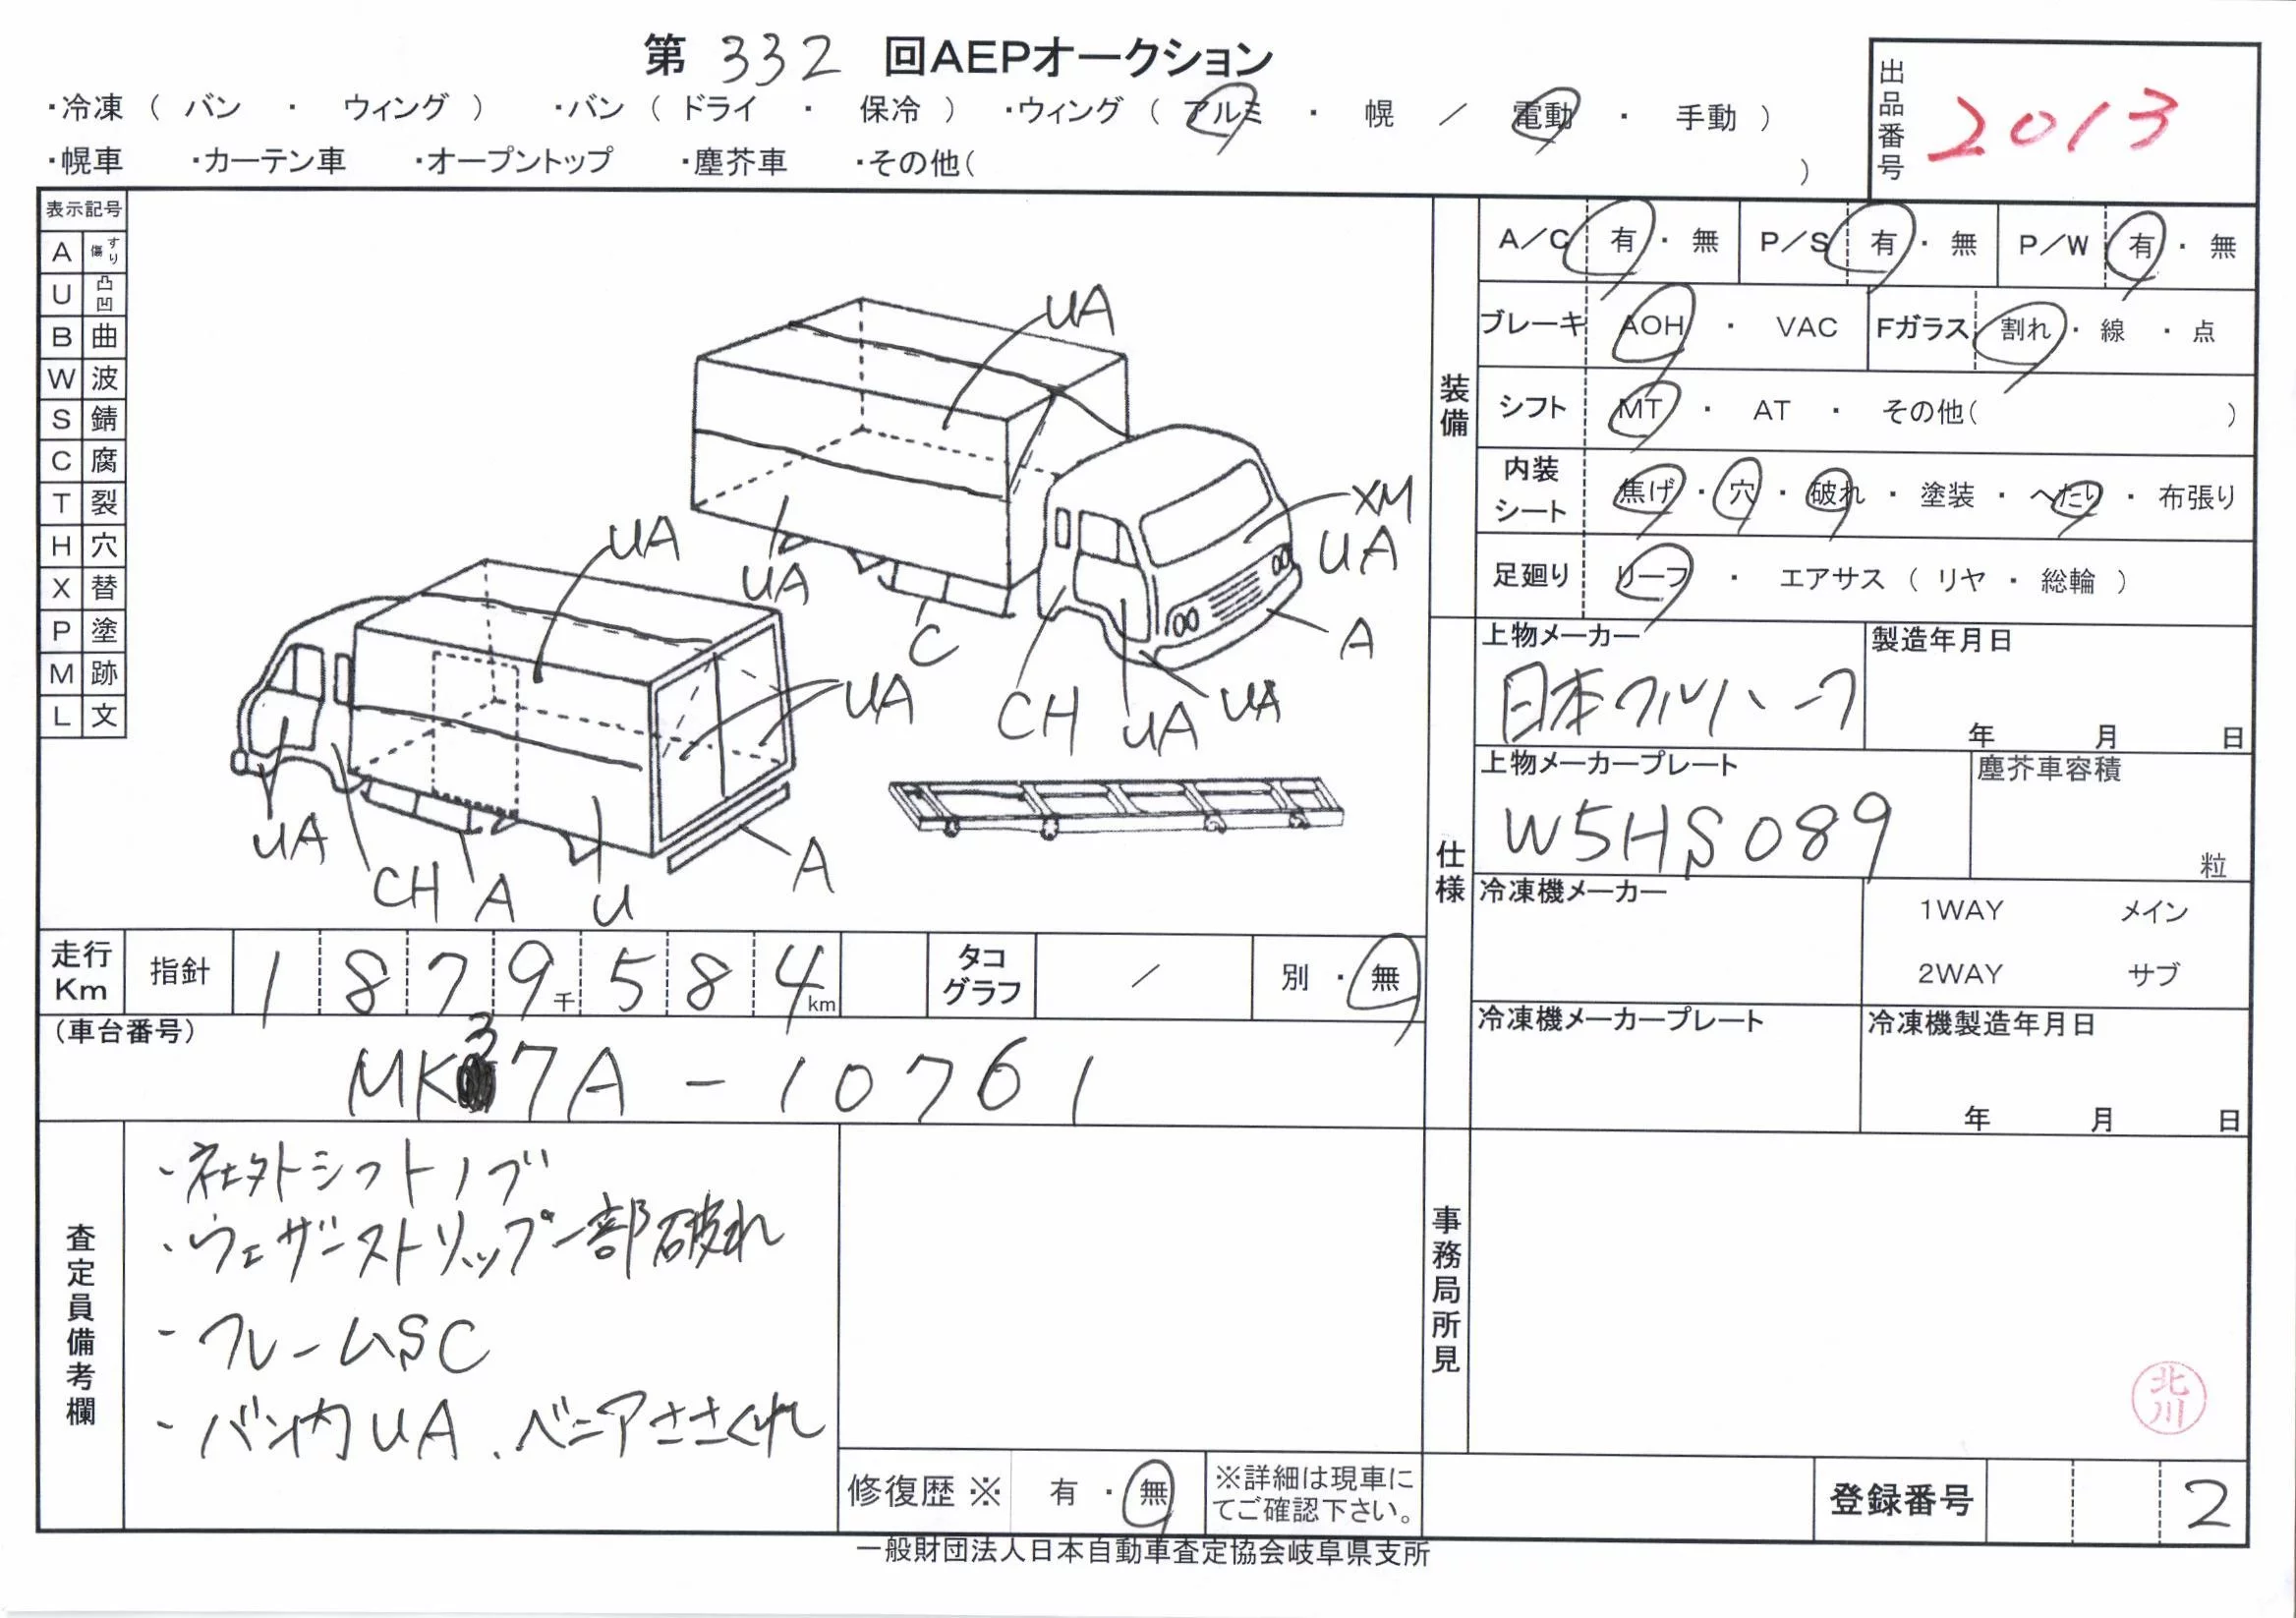 第 332 回AEPオークション
・冷凍（ バン ・ ウィング ） ・バン（ ドライ ・ 保冷 ） ・ウィング（ アルミ ・ 幌 ／ 電動 ・ 手動 ）
・幌車 ・カーテン車 ・オープントップ ・塵芥車 ・その他（ ）
出品番号 2013
表示記号
A すり傷
U 凸凹
B 曲
W 波
S 錆
C 腐
T 裂
H 穴
X 替
P 塗
M 跡
L 文
UA
XM
UA
UA
UA
C
A
CH
UA
UA
UA
UA
CH
A
U
A
装備
A／C 有 ・ 無 P／S 有 ・ 無 P／W 有 ・ 無
ブレーキ AOH ・ VAC Fガラス 割れ ・ 線 ・ 点
シフト MT ・ AT ・ その他（ ）
内装シート 焦げ ・ 穴 ・ 破れ ・ 塗装 ・ へたり ・ 布張り
足廻り リーフ ・ エアサス（ リヤ ・ 総輪 ）
仕様
上物メーカー 製造年月日
日本フルハーフ 年 月 日
上物メーカープレート 塵芥車容積
W5HS089 粒
冷凍機メーカー 1WAY メイン
2WAY サブ
冷凍機メーカープレート 冷凍機製造年月日
年 月 日
走行Km 指針 1 8 7 9千 5 8 4km タコグラフ ／ 別 ・ 無
（車台番号）
MK37A - 10761
査定員備考欄
・社外シフトノブ
・ウェザーストリップ一部破れ
・フレームSC
・バン内UA、ベニアささくれ
修復歴 ※ 有 ・ 無 ※詳細は現車にてご確認下さい。
事務局所見
北川
登録番号 2
一般財団法人日本自動車査定協会岐阜県支所